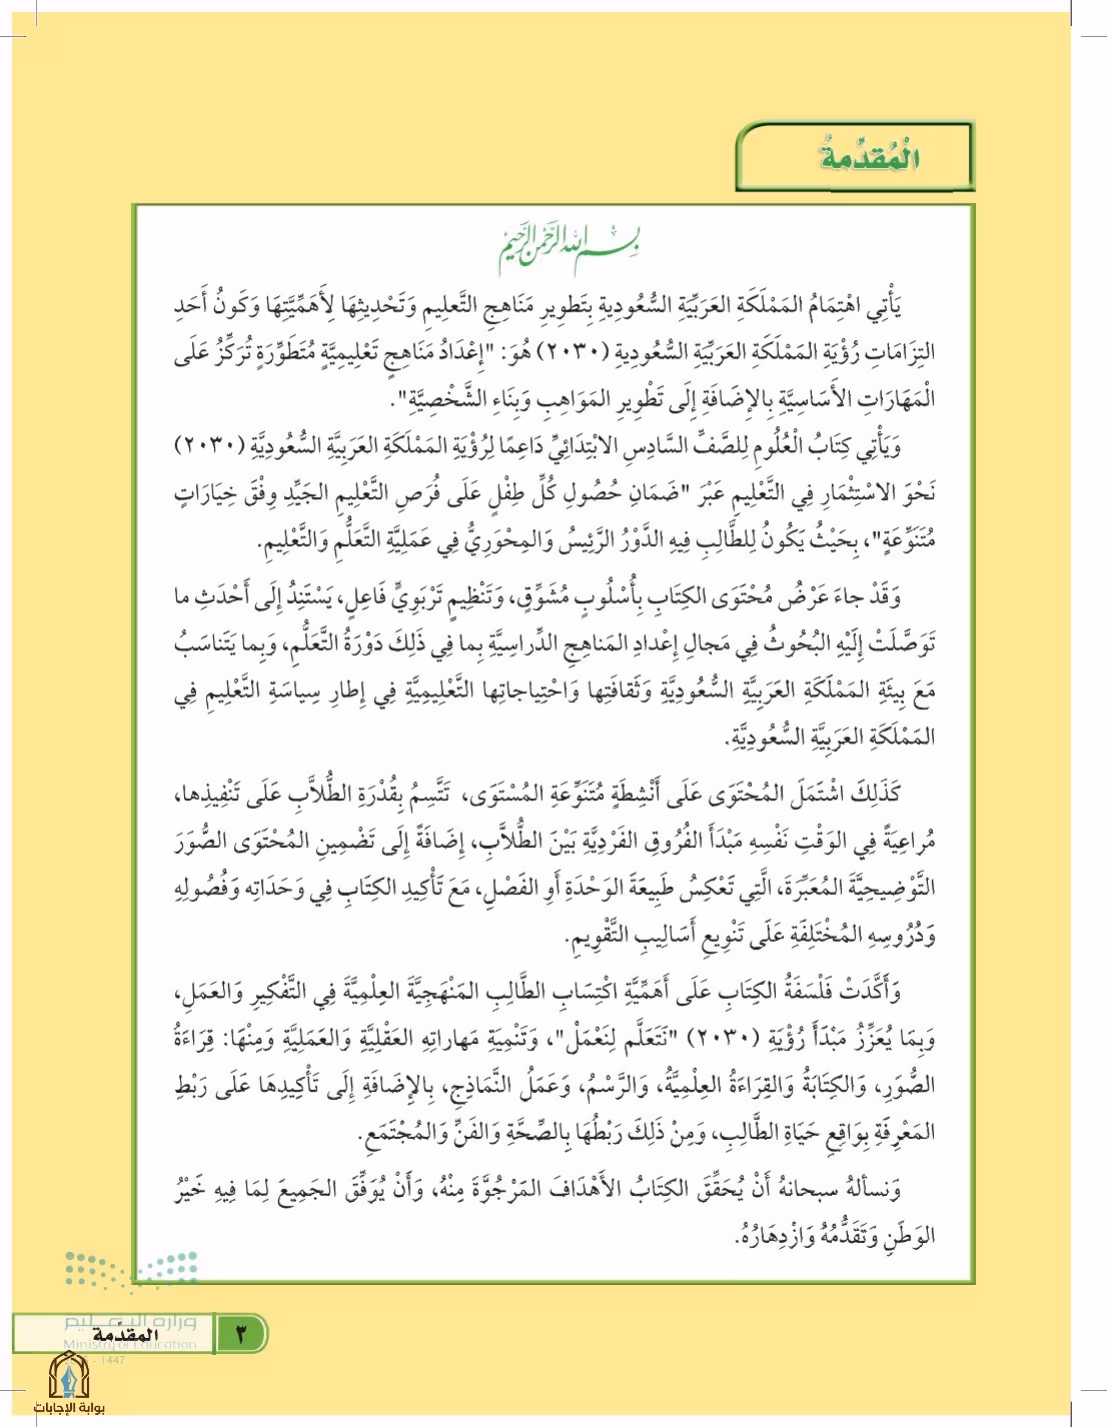 الْمُقَدِّمَةُ
بِسْمِ اللهِ الرَّحْمنِ الرَّحِيْمِ
يَأْتِي اهْتِمَامُ المَمْلَكَةِ العَرَبِّيَةِ السُّعُودِيةِ بِتَطوِيرِ مَنَاهِجِ التَّعلِيمِ وَتَحْدِيثِهَا لِأَهَمِّيَّتِهَا وَكَونُ أَحَدِ
التِزَامَاتِ رُؤْيَةِ المَمْلَكَةِ العَرَبِّيَةِ السُّعُودِيةِ (٢٠٣٠) هُوَ: "إِعْدَادُ مَنَاهِجٍ تَعْلِيمِيَّةٍ مُتَطَوِّرَةٍ تُرَكِّزُ عَلَى
الْمَهَارَاتِ الأَسَاسِيَّةِ بِالإِضَافَةِ إِلَى تَطْوِيرِ المَوَاهِبِ وَبِنَاءِ الشَّخْصِيَّةِ".
وَيَأْتِي كِتَابُ الْعُلُومِ لِلصَّفِّ السَّادِسِ الابْتِدَائِيِّ دَاعِمًا لِرُؤْيَةِ المَمْلَكَةِ العَرَبِيَّةِ السُّعُودِيَّةِ (٢٠٣٠)
نَحْوَ الاسْتِثْمَارِ فِي التَّعْلِيمِ عَبْرَ "ضَمَانِ حُصُولِ كُلِّ طِفْلٍ عَلَى فُرَصِ التَّعْلِيمِ الجَيِّدِ وِفْقَ خِيَارَاتٍ
مُتَنَوِّعَةٍ"، بِحَيْثُ يَكُونُ لِلطَّالِبِ فِيهِ الدَّوْرُ الرَّئِيسُ وَالمِحْوَرِيُّ فِي عَمَلِيَّةِ التَّعَلُّمِ وَالتَّعْلِيمِ.
وَقَدْ جاءَ عَرْضُ مُحْتَوَى الكِتَابِ بِأُسْلُوبٍ مُشَوِّقٍ، وَتَنْظِيمٍ تَرْبَوِيٍّ فَاعِلٍ، يَسْتَنِدُ إِلَى أَحْدَثِ ما
تَوَصَّلَتْ إِلَيْهِ البُحُوثُ فِي مَجالِ إِعْدادِ المَناهِجِ الدِّراسِيَّةِ بِما فِي ذَلِكَ دَوْرَةُ التَّعَلُّمِ، وَبِما يَتَناسَبُ
مَعَ بِيئَةِ المَمْلَكَةِ العَرَبِيَّةِ السُّعُودِيَّةِ وَثَقافَتِها وَاحْتِياجاتِها التَّعْلِيمِيَّةِ فِي إِطارِ سِياسَةِ التَّعْلِيمِ فِي
المَمْلَكَةِ العَرَبِيَّةِ السُّعُودِيَّةِ.
كَذَلِكَ اشْتَمَلَ المُحْتَوَى عَلَى أَنْشِطَةٍ مُتَنَوِّعَةِ المُسْتَوَى، تَتَّسِمُ بِقُدْرَةِ الطُّلاَّبِ عَلَى تَنْفِيذِها،
مُراعِيَةً فِي الوَقْتِ نَفْسِهِ مَبْدَأَ الفُرُوقِ الفَرْدِيَّةِ بَيْنَ الطُّلاَّبِ، إِضَافَةً إِلَى تَضْمِينِ المُحْتَوَى الصُّوَرَ
التَّوْضِيحِيَّةَ المُعَبِّرَةَ، الَّتِي تَعْكِسُ طَبِيعَةَ الوَحْدَةِ أَوِ الفَصْلِ، مَعَ تَأْكِيدِ الكِتَابِ فِي وَحَدَاتِه وَفُصُولِهِ
وَدُرُوسِهِ المُخْتَلِفَةِ عَلَى تَنْوِيعِ أَسَالِيبِ التَّقْوِيمِ.
وَأَكَّدَتْ فَلْسَفَةُ الكِتَابِ عَلَى أَهَمِّيَّةِ اكْتِسَابِ الطَّالِبِ المَنْهَجِيَّةَ العِلْمِيَّةَ فِي التَّفْكِيرِ وَالعَمَلِ،
وَبِمَا يُعَزِّزُ مَبْدَأَ رُؤْيَةِ (٢٠٣٠) "نَتَعَلَّم لِنَعْمَلْ"، وَتَنْمِيَةِ مَهاراتِهِ العَقْلِيَّةِ وَالعَمَلِيَّةِ وَمِنْهَا: قِرَاءَةُ
الصُّوَرِ، وَالكِتَابَةُ وَالقِرَاءَةُ العِلْمِيَّةُ، وَالرَّسْمُ، وَعَمَلُ النَّمَاذِجِ، بِالإِضَافَةِ إِلَى تَأْكِيدِهَا عَلَى رَبْطِ
المَعْرِفَةِ بِوَاقِعِ حَيَاةِ الطَّالِبِ، وَمِنْ ذَلِكَ رَبْطُهَا بِالصِّحَّةِ وَالفَنِّ وَالمُجْتَمَعِ.
وَنسألهُ سبحانهُ أَنْ يُحَقِّقَ الكِتَابُ الأَهْدَافَ المَرْجُوَّةَ مِنْهُ، وَأَنْ يُوَفِّقَ الجَمِيعَ لِمَا فِيهِ خَيْرُ
الوَطَنِ وَتَقَدُّمُهُ وَازْدِهَارُهُ.
وزارة التعليم
٣
المقدِّمة
Ministry of Education
- 1447
بوابة الإجابات